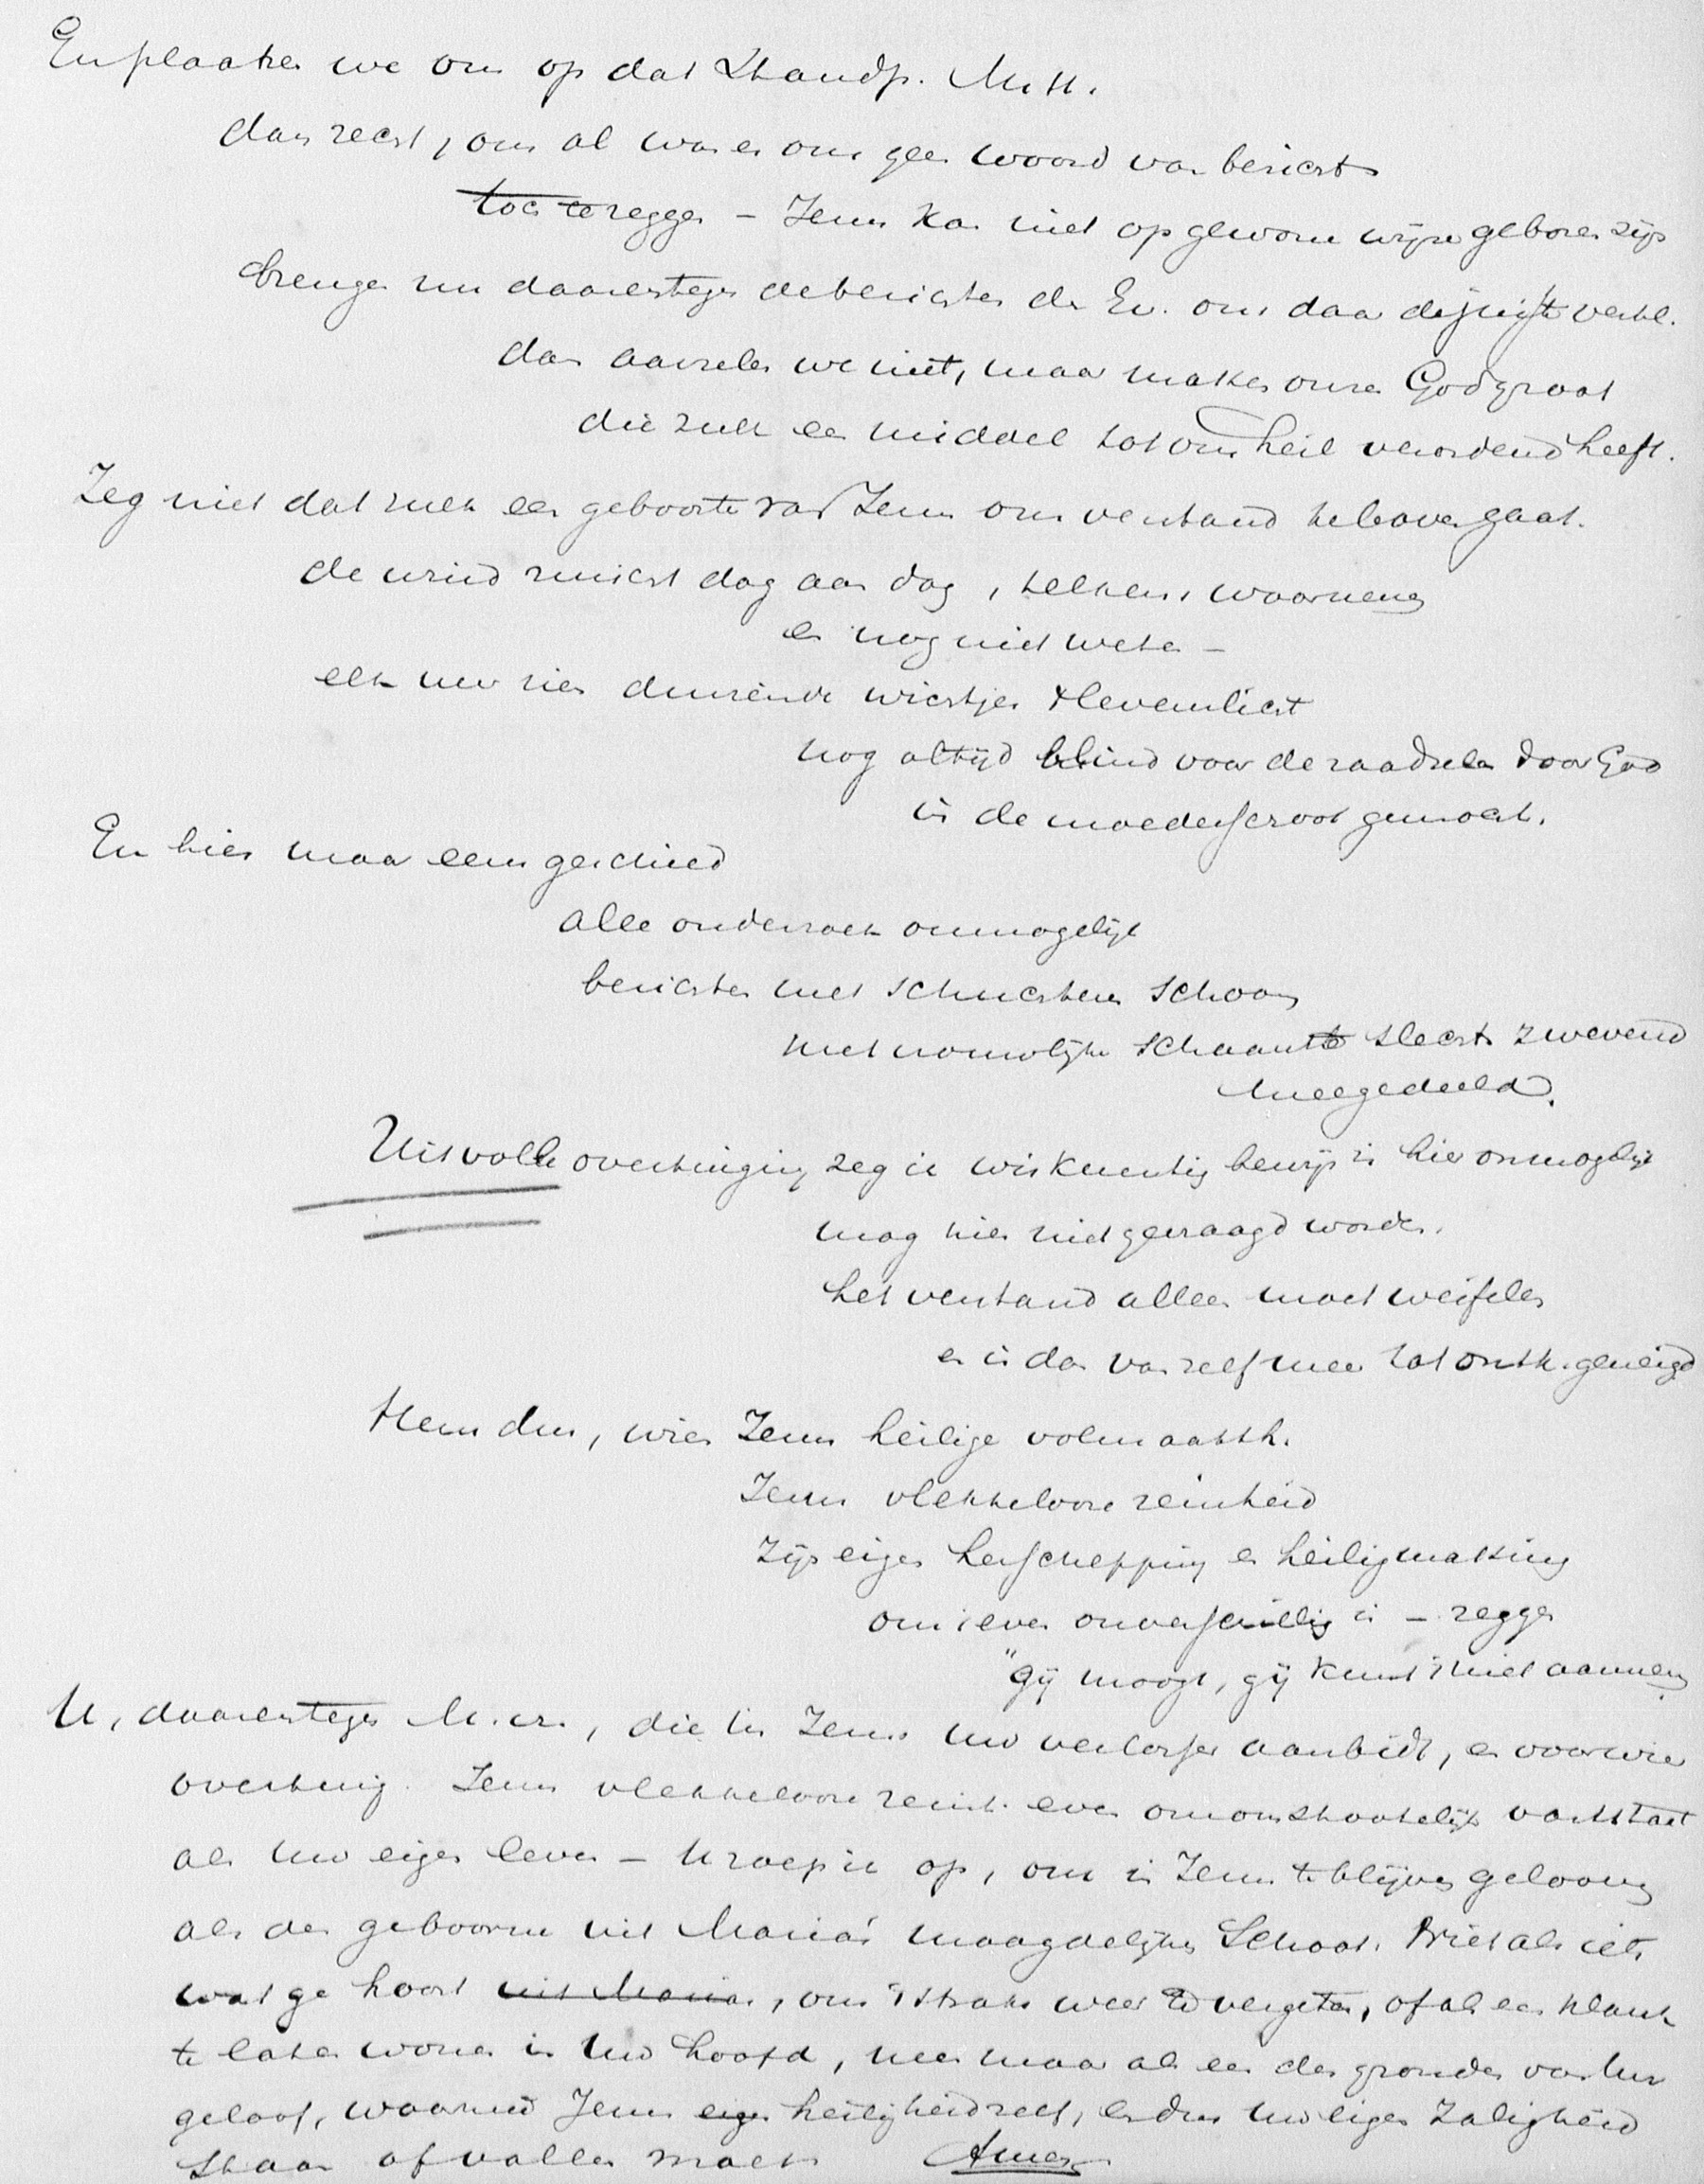 En plaatsen we ons op dat standp. M. H.
dan zegt, ons al was er ons geen woord van bericht
toe te zeggen – Jezus kan niet op gewone wijze geboren zijn
brengen nu daarentegen de berichten der Ev. ons daar de
dan aarzelen we niet, maar maken onzen God groot
die zulk een middel tot ons heil verordend heeft.
Zeg niet dat zulk een geboorte van Jezus ons verstand te boven gaat.
de wind zuicht dag aan dag, telkens waarneming
en nog niet weten –
elk uur zien duizende wichtjes 't levenslicht
nog altijd blind voor de raadselen door God
in de moederschoot gewrocht.
En hier maar eens geschied
alle onderzoek onmogelijk
berichten met schuchtere schroom
met vrouwelijke schaamte slechts zwevend
meegedeeld.
Uit volle overtuiging zeg ik wiskunstig bewijs is hier onmogelijk
mag hier niet gevraagd worden.
het verstand alleen moet weifelen
en is dan van zelf meer tot ontk. geneigd
Hem dus, wien Jezus heilige volmaakth.
Jezus vlekkelooze reinheid
zijn eigen herschepping en heiligmaking
om 't even onverschillig is – zeggen
"gij moogt, gij kunt 't niet aannemen
U, daarentegen M. chr., die in Jezus uw verlosser aanbidt, en voor wien
overtuig. Jezus vlekkelooze reinh. even onomstootelijk vaststaat
als uw eigen leven – U roep ik op, om in Jezus te blijven gelooven
als den geboorne uit Maria's maagdelijken Schoot. Niet als iets
wat ge hoort uit Maria, om 't straks weer te vergeten, of als een klank
te laten wonen in uw hoofd, neen maar als een der gronden van uw
geloof, waarmeê Jezus eigen heiligheid zelf, en dus uw eigen zaligheid
staan of vallen moet. Amen